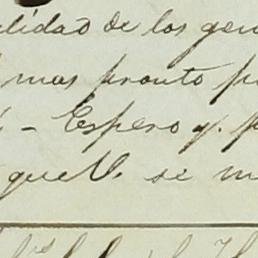 alidad de los gen
mas pronto p
- Espero q. p
que V. se m